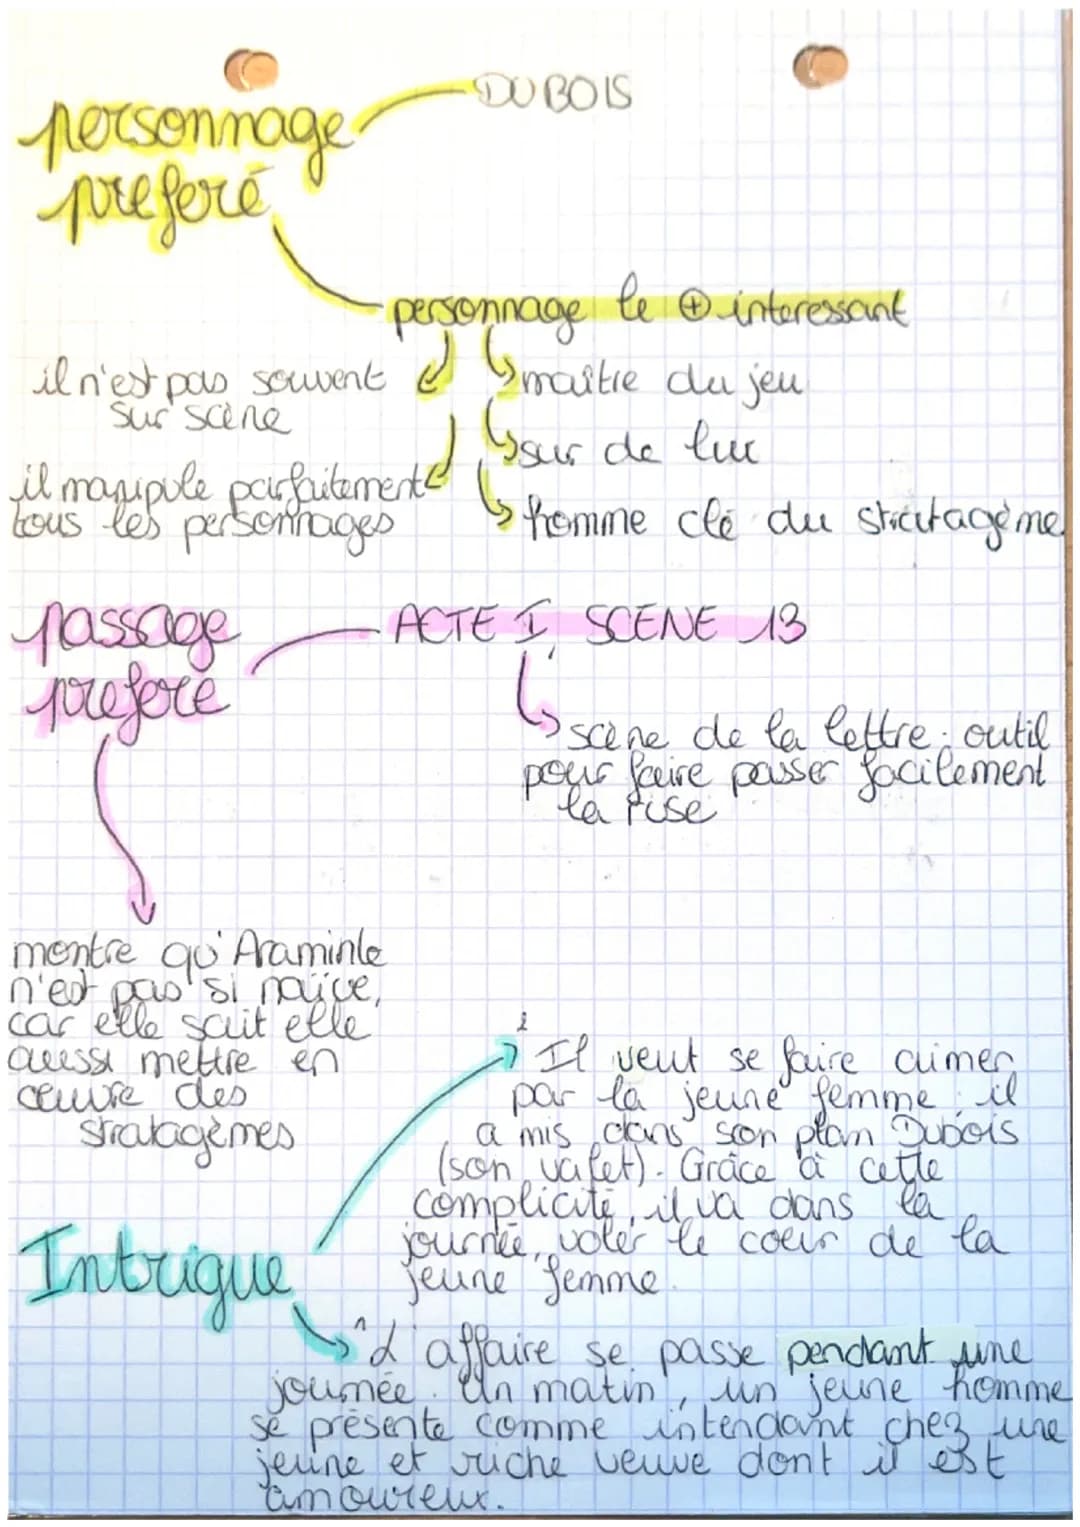 DUBOIS
personnage
preferé
personnage le ⊕ interessant
il n'est pas souvent
sur scène
maître du jeu
sur de lui
il manipule parfaitement
tous les personnages
homme clé du stratagème
passage
prefere
ACTE I, SCENE 13
scène de la lettre : outil
pour faire passer facilement
la ruse
montre qu'Araminte
n'est pas si naïve,
car elle sait elle
aussi mettre en
œuvre des
stratagèmes
Intrigue
2
Il veut se faire aimer
par la jeune femme ; il
a mis dans son plan Dubois
(son valet). Grâce à cette
complicité, il va dans la
journée, voler le coeur de la
jeune femme.
1
L'affaire se passe pendant une
journée. Un matin, un jeune homme
se présente comme intendant chez une
jeune et riche veuve dont il est
amoureux.